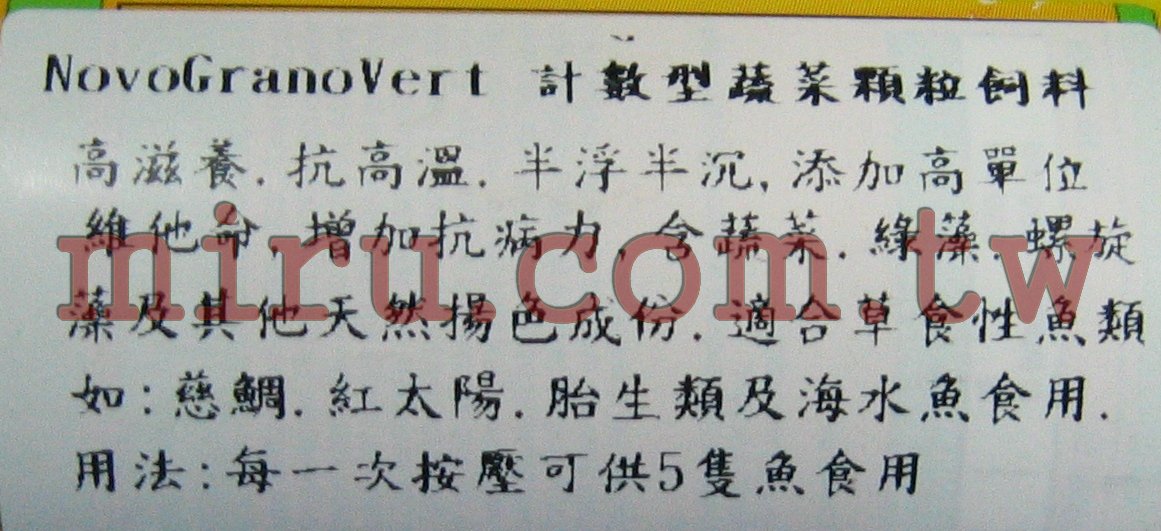 NovoGranoVert 計數型蔬菜顆粒飼料
高滋養.抗高溫.半浮半沉,添加高單位
維他命,增加抗病力,含蔬菜.綠藻.螺旋
藻及其他天然揚色成份.適合草食性魚類
如:慈鯛.紅太陽.胎生類及海水魚食用.
用法:每一次按壓可供5隻魚食用
miru.com.tw